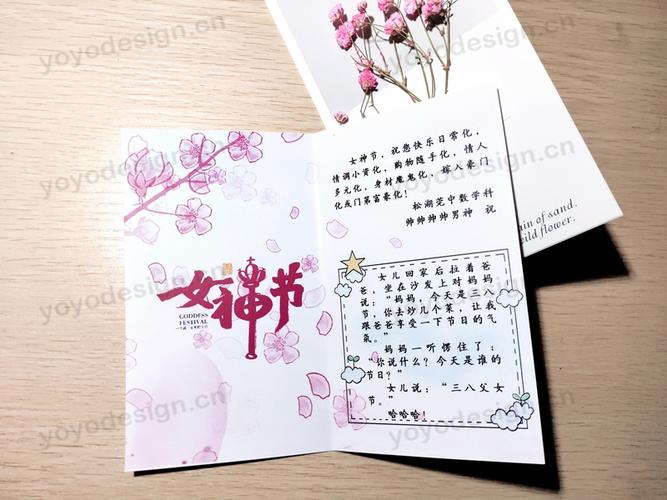 yoyodesign.cn
yoyodesign.cn
yoyodesign.cn
yoyodesign.cn
yoyodesign.cn
女神节
GODDESS
FESTIVAL
女神节，祝您快乐日常化，
情调小资化，购物随手化，情人
多元化，身材魔鬼化，嫁入豪门
化成门第富豪化！
松湖莞中数学科
帅帅帅帅男神 祝
女儿回家后拉着爸
爸，坐在沙发上对妈妈
说：“妈妈，今天是三八
节，你去炒几个菜，让我
跟爸爸享受一下节日的气
氛。”
妈妈一听愣住了：
“你说什么？今天是谁的
节日？”
女儿说：“三八父女
节。”
哈哈哈！
ain of sand.
ild flower.